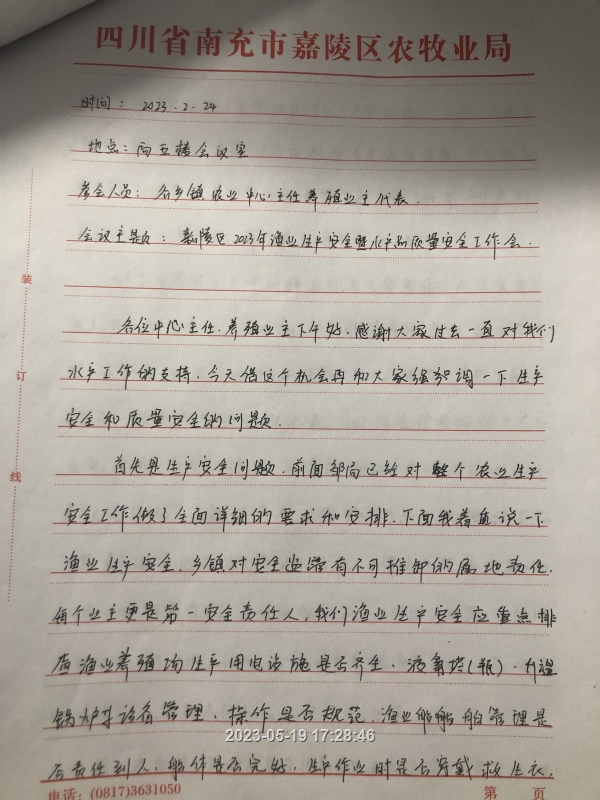 四川省南充市嘉陵区农牧业局
时间: 2023.2.24
地点:局五楼会议室
参会人员: 各乡镇农业中心主任养殖业主代表.
会议主题: 嘉陵区2023年渔业生产安全暨水产品质量安全工作会.
各位中心主任、养殖业主下午好,感谢大家过去一直对我们
水产工作的支持,今天借这个机会再和大家强调一下生产
安全和质量安全的问题.
首先是生产安全问题,前面邹局已经对整个农业生产
安全工作做了全面详细的要求和安排,下面我着重说一下
渔业生产安全,乡镇对安全监管有不可推卸的属地责任,
每个业主更是第一安全责任人,我们渔业生产安全应重点排
查渔业养殖场生产用电设施是否齐全、液氧塔(瓶)、升温
锅炉等设备管理、操作是否规范,渔业船舶管理是
否责任到人,船体是否完好,生产作业时是否穿戴救生衣,
装
订
线
2023-05-19 17:28:46
电话:(0817)3631050
第 页